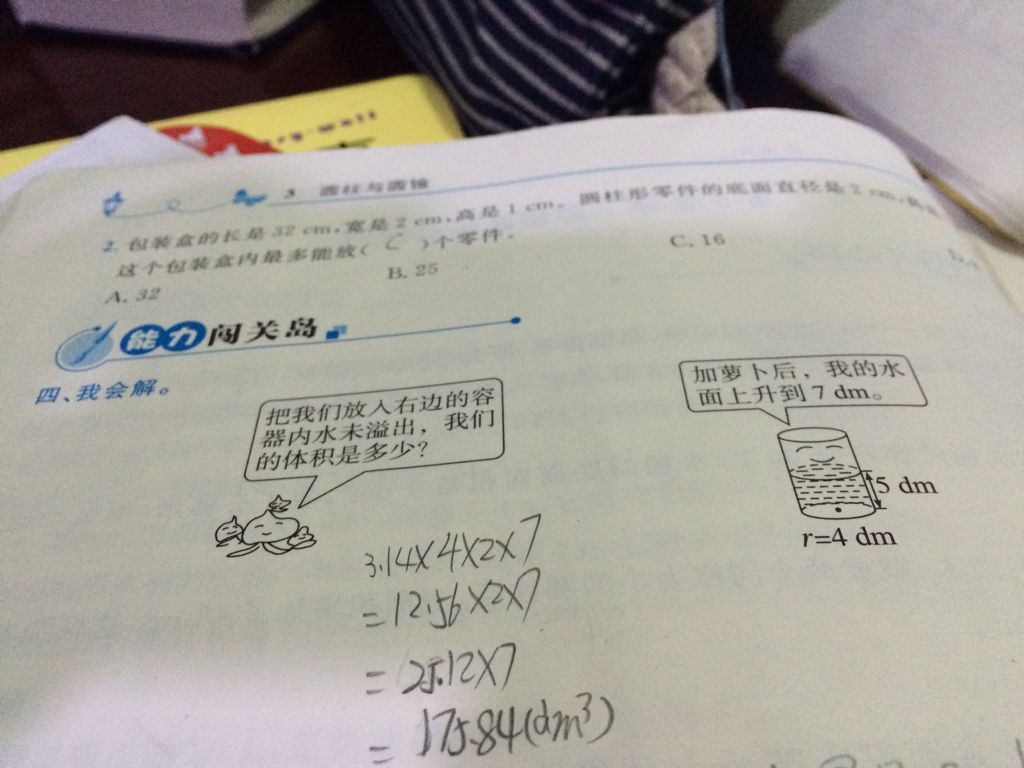 3 圆柱与圆锥
2. 包装盒的长是32 cm,宽是2 cm,高是1 cm。圆柱形零件的底面直径是2 cm,高是
这个包装盒内最多能放( C )个零件。
A. 32
B. 25
C. 16
能力闯关岛
四、我会解。
把我们放入右边的容
器内水未溢出,我们
的体积是多少?
加萝卜后,我的水
面上升到7 dm。
5 dm
r=4 dm
3.14×4×2×7
=12.56×2×7
=25.12×7
=175.84(dm³)